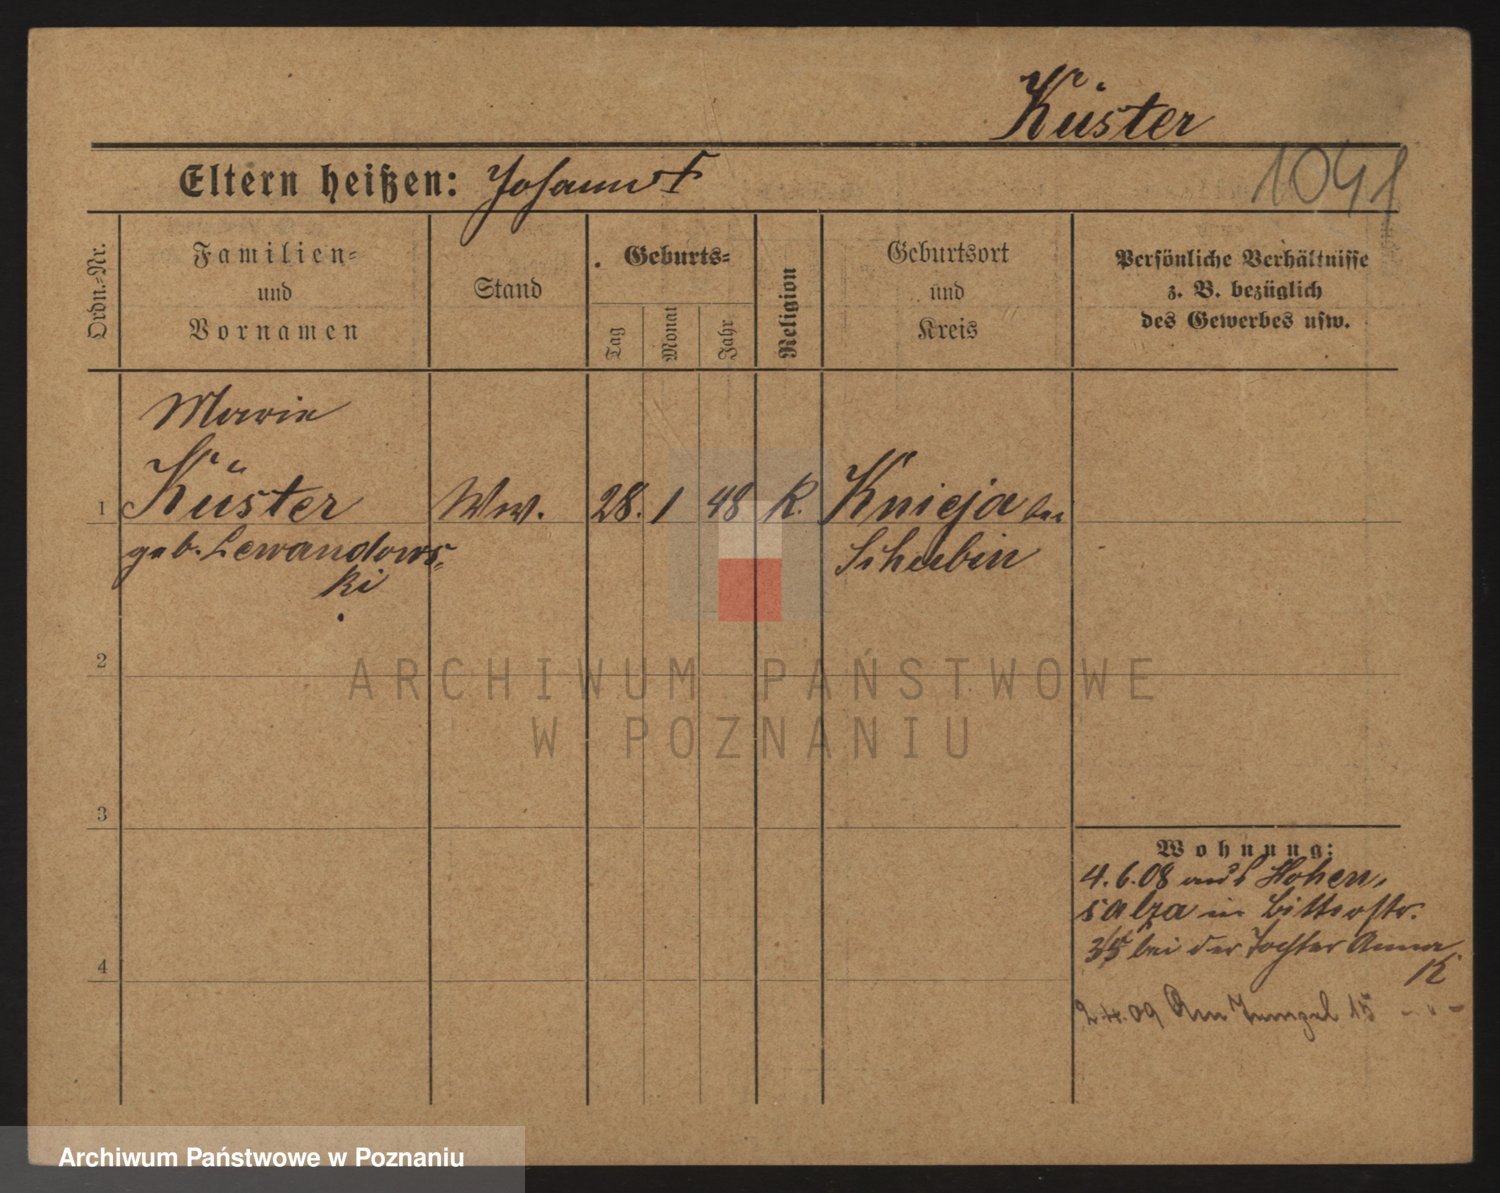 Küster
1041
Eltern heißen: Johann †
Ordn.-Nr.
Familien-
und
Vornamen
Stand
Geburts-
Tag
Monat
Jahr
Religion
Geburtsort
und
Kreis
Persönliche Verhältnisse
z. B. bezüglich
des Gewerbes usw.
Marie
1 Küster Ww. 28. 1 48 K. Knieja bei
geb. Lewandows- Schubin
ki
2
ARCHIWUM PAŃSTWOWE
W POZNANIU
3
Wohnung:
4.6.08 aus Hohen-
salza in Bitterstr.
35 bei der Tochter Anna
K
4
2.4.09 Am 15 - " -
Archiwum Państwowe w Poznaniu